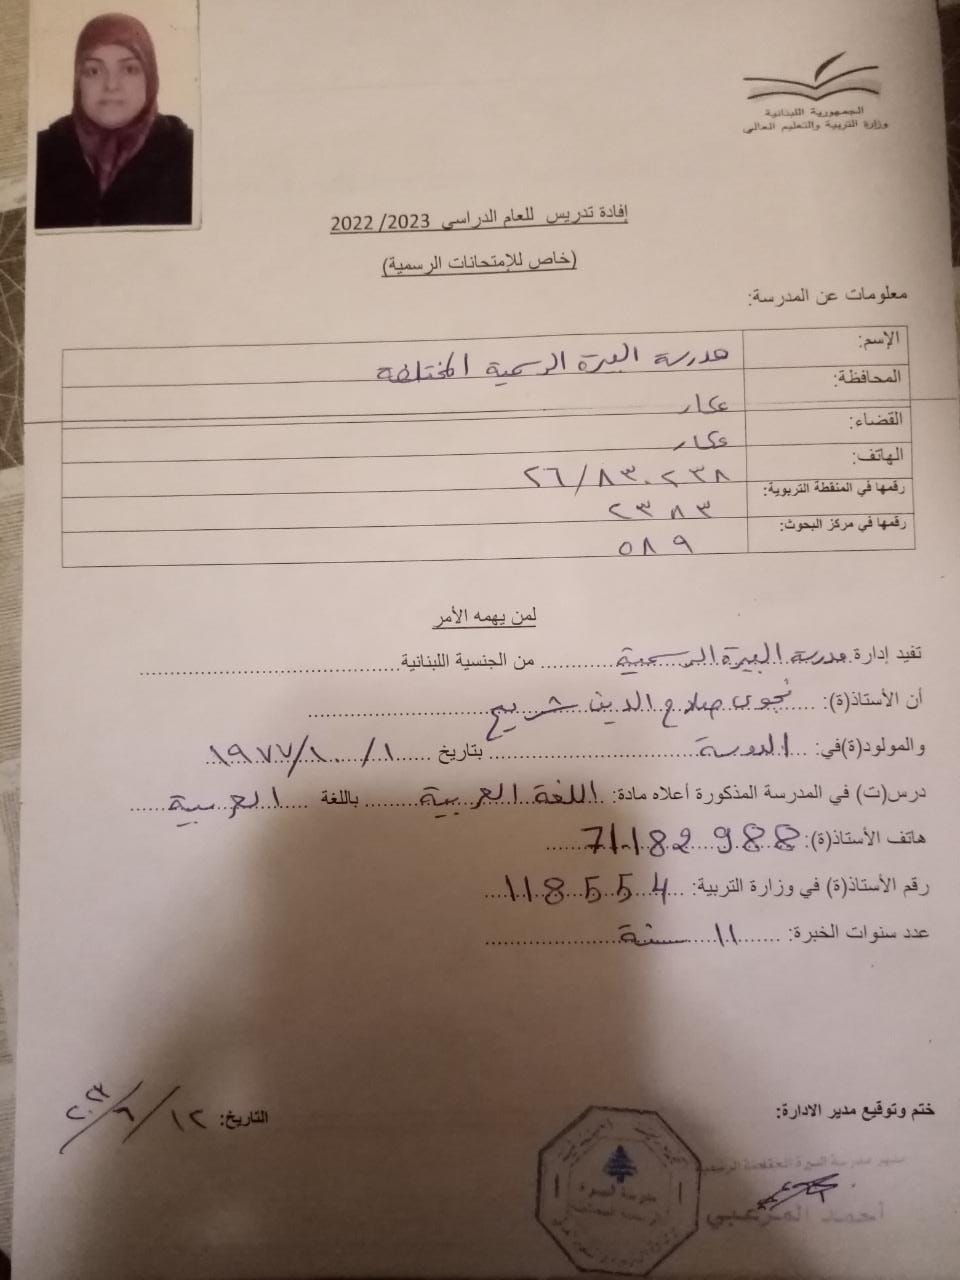 الجمهورية اللبنانية
وزارة التربية والتعليم العالي
إفادة تدريس للعام الدراسي 2023/ 2022
(خاص للإمتحانات الرسمية)
معلومات عن المدرسة:
الإسم: مدرسة البيرة الرسمية المختلطة
المحافظة: عكار
القضاء: عكار
الهاتف: ٢٦/٨٣٠٢٣٨
رقمها في المنقطة التربوية: ٢٣٨٣
رقمها في مركز البحوث: ٥٨٩
لمن يهمه الأمر
تفيد إدارة مدرسة البيرة الرسمية من الجنسية اللبنانية
أن الأستاذ(ة): نجوى صلاح الدين شريتح
والمولود(ة)في: الدوسة بتاريخ ١٩٧٧/١٠/١
درس(ت) في المدرسة المذكورة أعلاه مادة: اللغة العربية باللغة العربية
هاتف الأستاذ(ة): 71182988
رقم الأستاذ(ة) في وزارة التربية: 118554
عدد سنوات الخبرة: ١١ سنة
ختم وتوقيع مدير الادارة: التاريخ: ١٢/٦/٢٠٢٣
مدير مدرسة البيرة المختلطة الرسمية
أحمد المرعبي
مدرسة البيرة